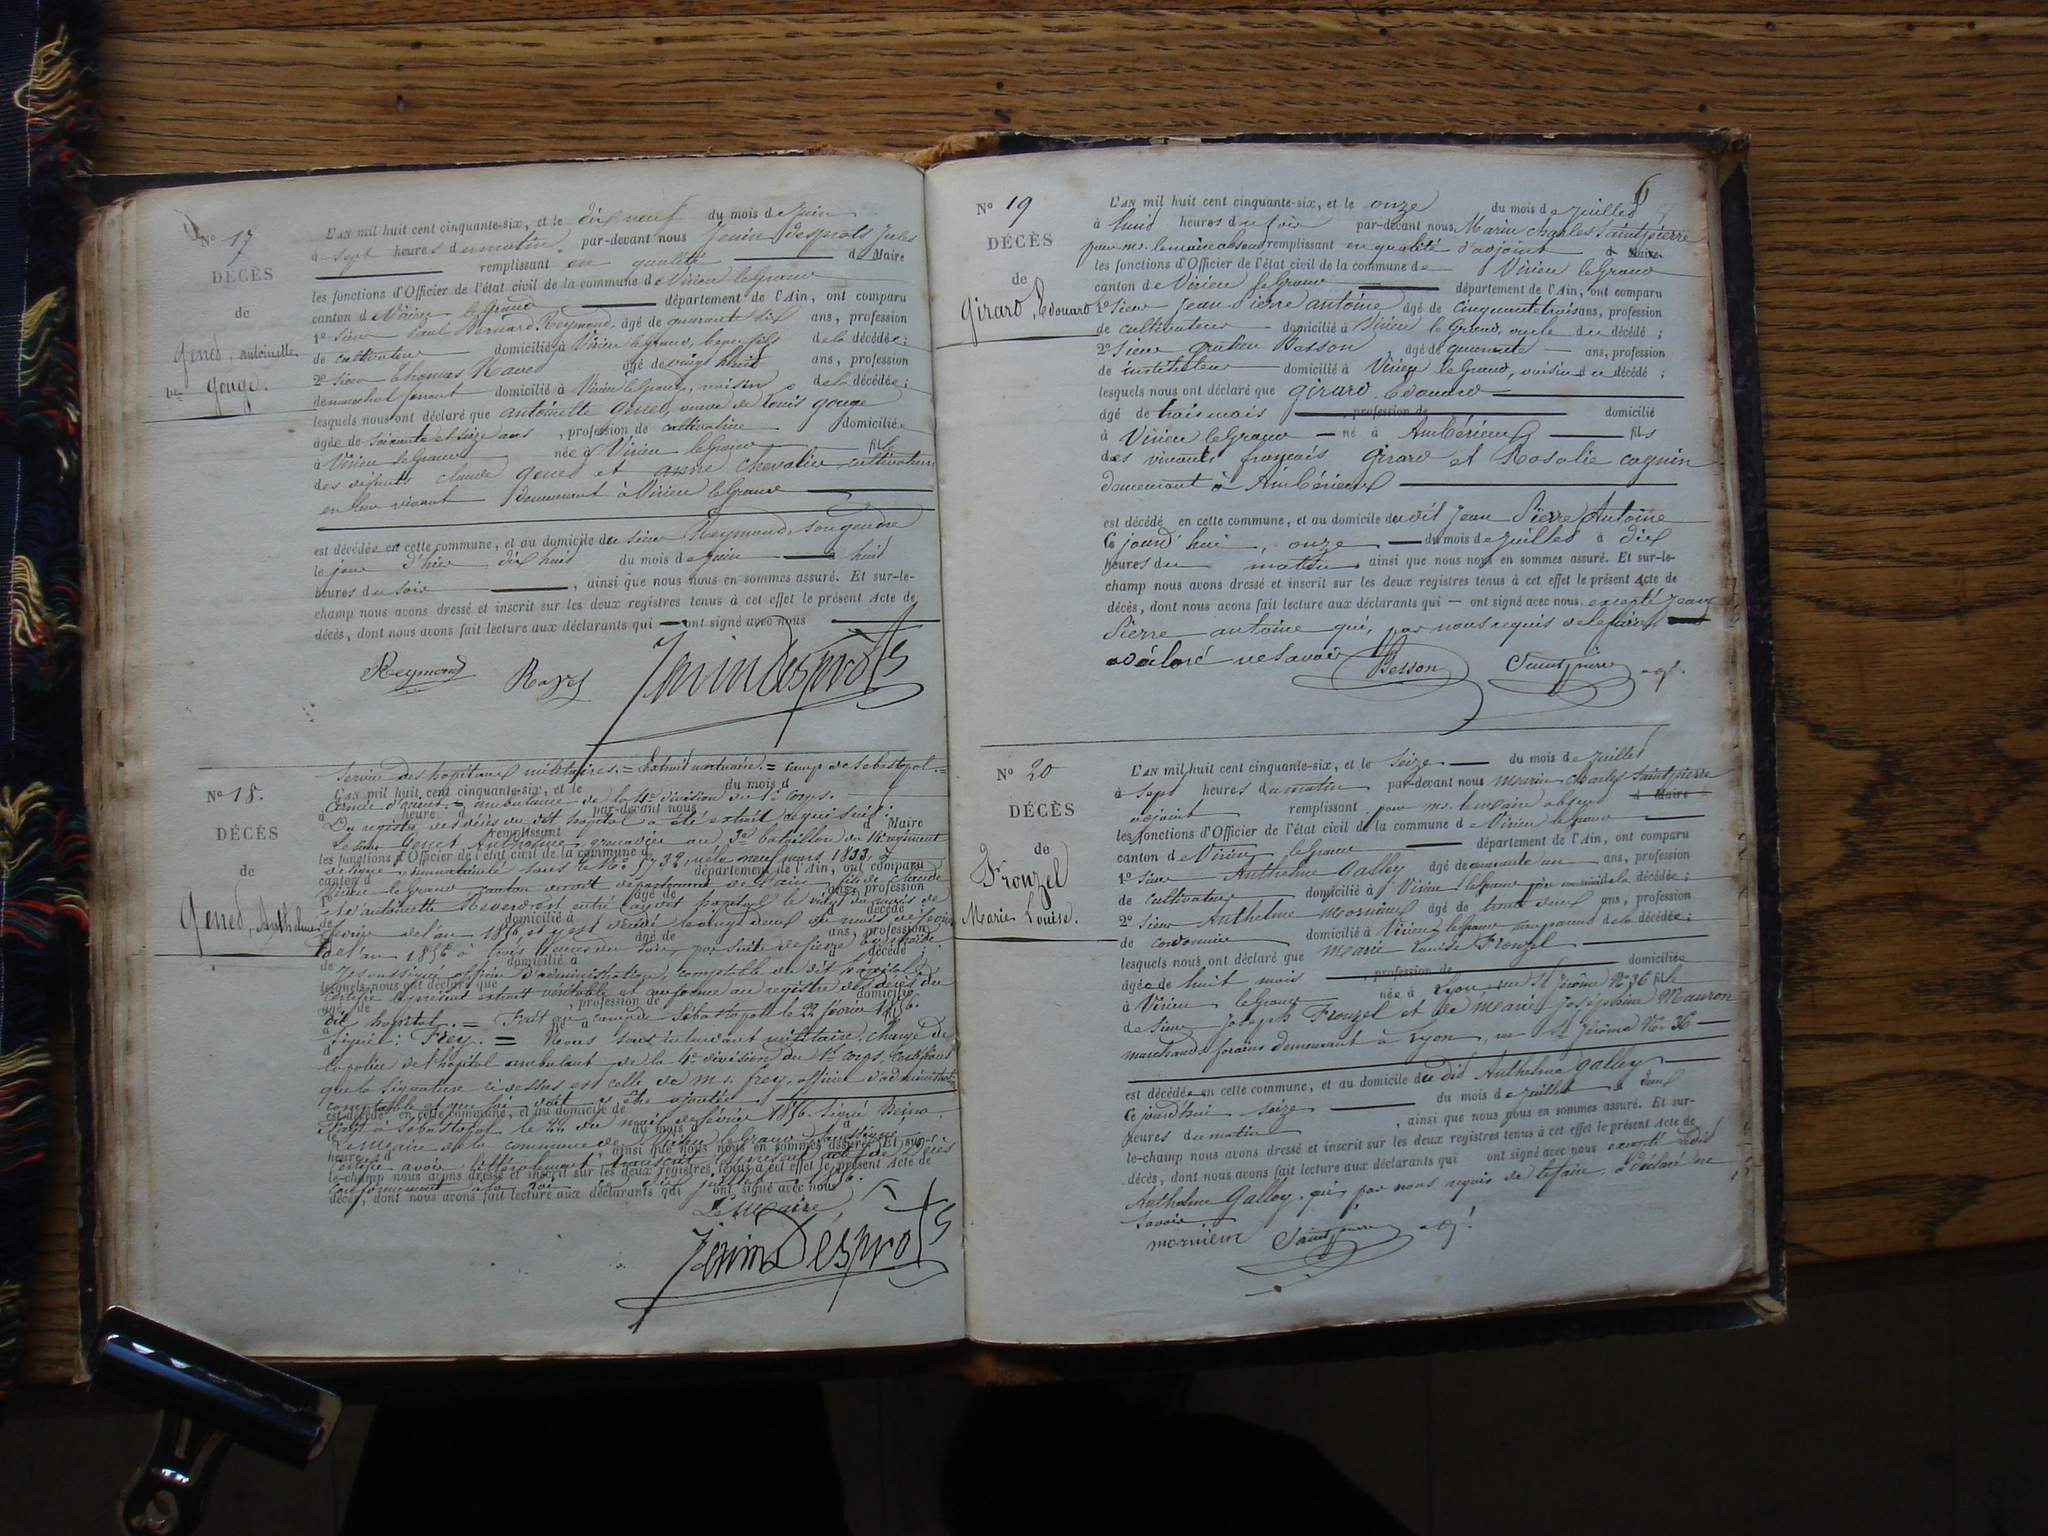 No 17
DÉCÈS
de
Genet, Antoinette
ve Gouge.
L'AN mil huit cent cinquante-six, et le dix neuf du mois de Juin
à sept heures du matin, par-devant nous Jenin Desprots Jules
remplissant en qualité de Maire
les fonctions d'Officier de l'état civil de la commune de Virieu le Grand
canton de Virieu le Grand département de l'Ain, ont comparu
1o Sieur Paul Bernard Reymond, âgé de quarante six ans, profession
de cultivateur domicilié à Virieu le Grand, beau fils de la décédée;
2o Sieur Thomas Ravet âgé de vingt huit ans, profession
de marechal ferrant domicilié à Virieu le Grand, voisin de la décédée;
lesquels nous ont déclaré que antoinette Genet, veuve de Louis gouge
âgée de soixante et seize ans, profession de cultivatrice domiciliée
à Virieu le Grand née à Virieu le Grand fille
des défunts claude genet et anne chevalier, cultivateurs
en leur vivant demeurant à Virieu le Grand
est décédée en cette commune, et au domicile du sieur Reymond, son gendre
le jour d'hier dix huit du mois de Juin à huit
heures du soir, ainsi que nous nous en sommes assuré. Et sur-le-
champ nous avons dressé et inscrit sur les deux registres tenus à cet effet le présent Acte de
décès, dont nous avons fait lecture aux déclarants qui ont signé avec nous
Reymond Jenin Desprots
No 18.
DÉCÈS
de
Genet, Anthelme
Service des hopitaux militaires. = Extrait mortuaire. = camp de Sebastopol. =
L'AN mil huit cent cinquante-six, et le du mois d
armée d'orient. = ambulance de la 4e division du 1er corps.
à heure d par-devant nous
Du registre des décès du dit hopital a été extrait ce qui suit:
remplissant d Maire
Le sieur Genet Anthelme, grenadier au 3e bataillon du 14e régiment
les fonctions d'Officier de l'état civil de la commune d
de ligne, immatriculé sous le No 5732, né le neuf mars 1833, à
canton d département de l'Ain, ont comparu
Virieu le Grand canton dudit département de l'ain, fils de claude
1o âgé de ans, profession
et d'antoinette Reverdy est entré au dit hopital le vingt du mois de
de domicilié à d décédé
février de l'an 1856 et y est décédé le vingt deux du mois de février
2o âgé de ans, profession
de l'an 1856 à trois heures du soir, par suite de fievre typhoïde.
de domicilié à d décédé
Je soussigné officier d'administration, comptable du dit hopital
lesquels nous ont déclaré que
certifie le présent extrait véritable et conforme au registre des décès du
âgé de, profession de domicilié
dit hopital. = Fait au camp de Sébastopol le 22 février 1856.
à né à fil
Signé: Frey. = Nous sous intendant militaire chargé de
la police de l'hopital ambulant de la 4e division du 1er corps certifions
que la signature ci dessus est celle de Mr. frey, officier d'administration
comptable et que foi doit y être ajoutée.
est décédé en cette commune, et au domicile de
Fait à Sébastopol le 22 du mois de février 1856. Signé
le du mois d à
Le Maire de la commune de Virieu le Grand Soussigné
heure d, ainsi que nous nous en sommes assuré. Et sur-
Certifie avoir littéralement transcrit le présent acte de Décès
le-champ nous avons dressé et inscrit sur les deux registres tenus à cet effet le présent Acte de
conformement à la loi ce dix juillet 1856.
décès, dont nous avons fait lecture aux déclarants qui ont signé avec nous
Le Maire,
Jenin Desprots
6
No 19
DÉCÈS
de
Girard, Edouard
L'AN mil huit cent cinquante-six, et le onze du mois de Juillet
à huit heures du soir par-devant nous, Marin Charles Saintpierre
pour mr. le maire absent remplissant en qualité d'adjoint d Maire
les fonctions d'Officier de l'état civil de la commune de Virieu le Grand
canton de Virieu le Grand département de l'Ain, ont comparu
1o Sieur Jean Pierre antoine âgé de cinquante trois ans, profession
de cultivateur domicilié à Virieu le Grand, oncle du décédé;
2o Sieur Besson âgé de quarante ans, profession
de instituteur domicilié à Virieu le Grand, voisin du décédé;
lesquels nous ont déclaré que girard Edouard
âgé de trois mois profession de domicilié
à Virieu le Grand né à Ambérieux fils
des vivants français girard et Rosalie coquin
demeurant à Ambérieux
est décédé en cette commune, et au domicile du dit Jean Pierre Antoine
Ce jourd'hui, onze du mois de Juillet à dix
heures du matin, ainsi que nous nous en sommes assuré. Et sur-le-
champ nous avons dressé et inscrit sur les deux registres tenus à cet effet le présent Acte de
décès, dont nous avons fait lecture aux déclarants qui ont signé avec nous excepté Jean
Pierre antoine qui, par nous requis de le faire
a déclaré ne savoir Besson Saintpierre adj.
No 20
DÉCÈS
de
Fronzel
Marie Louise.
L'AN mil huit cent cinquante-six, et le seize du mois de Juillet
à sept heures du matin par-devant nous Marin Charles Saintpierre
adjoint remplissant pour mr. le maire absent d Maire
les fonctions d'Officier de l'état civil de la commune de Virieu le Grand
canton de Virieu le Grand département de l'Ain, ont comparu
1o Sieur Anthelme Galley âgé de quarante un ans, profession
de cultivateur domicilié à Virieu le Grand de la décédée;
2o Sieur Anthelme Mornieux âgé de trente deux ans, profession
de cordonnier domicilié à Virieu le Grand de la décédée;
lesquels nous ont déclaré que Marie Louise Fronzel
âgée de huit mois, profession de domiciliée
à Virieu le Grand née à Lyon, rue St Jérôme No 36 fille
de Sieur Joseph Fronzel et de Marie Joséphine Mauron
marchands forains demeurant à Lyon, rue St Jérôme No. 36
est décédée en cette commune, et au domicile du dit Anthelme Galley
Ce jourd'hui seize du mois de Juillet à deux
heures du matin, ainsi que nous nous en sommes assuré. Et sur-
le-champ nous avons dressé et inscrit sur les deux registres tenus à cet effet le présent Acte de
décès, dont nous avons fait lecture aux déclarants qui ont signé avec nous excepté ledit
Anthelme Galley, qui, par nous requis de le faire, a déclaré ne
savoir
Saintpierre adj.